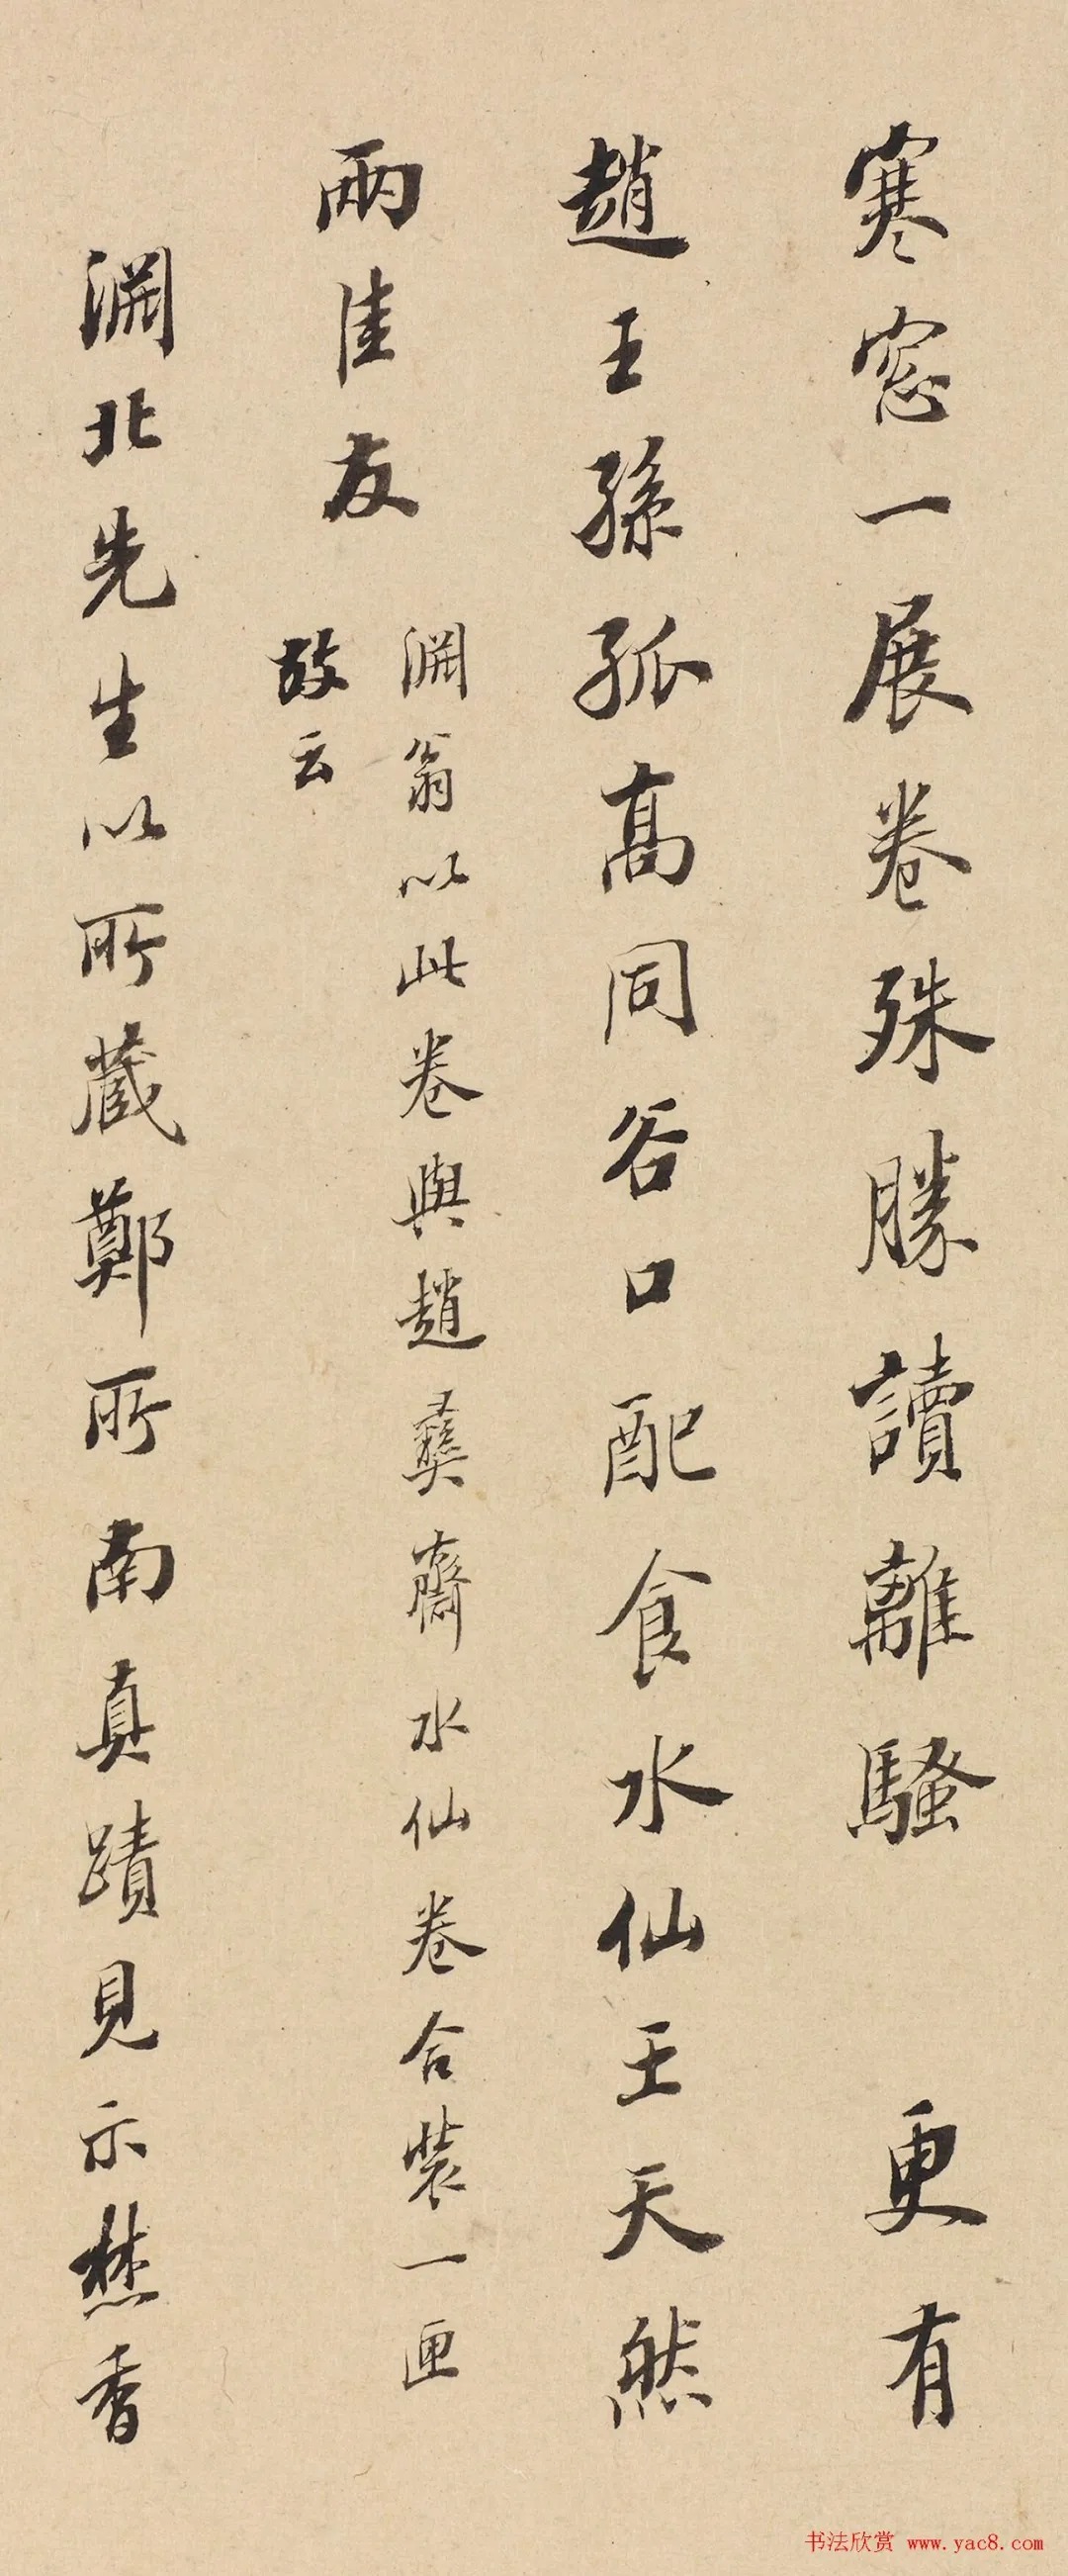 寒窓一展卷殊勝讀離騷 更有
趙王孫孤高同谷口配食水仙王天然
兩佳友
淵翁以此卷與趙彝齋水仙卷合裝一匣
故云
淵北先生以所藏鄭所南真蹟見示焚香
书法欣赏 www.yac8.com